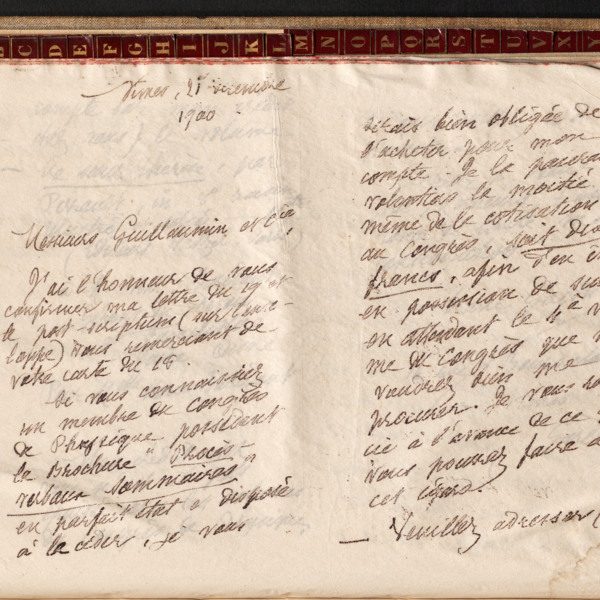 C D E F G H I J K L M N O P Q R S T U V X Y
Nimes, 21 décembre
1900
Messieurs Guillaumin et Cie,
J'ai l'honneur de vous
confirmer ma lettre du 19 et
le post-scriptum (sur l'enve-
loppe) vous remerciant de
votre carte du 18.
Si vous connaissiez
un membre du Congrès
de Physique possédant
la Brochure "Procès-
verbaux sommaires"
en parfait état & disposé
à la céder, je vous
serais bien obligée de
l'acheter pour mon
compte. Je la paierai
volontiers la moitié
même de la cotisation
au Congrès, soit dix
francs, afin d'en ê
en possession de su
en attendant le 4e v
me du Congrès que v
voudrez bien me
procurer. Je vous
cie à l'avance de ce
vous pourrez faire à
cet égard.
— Veuillez adresser (